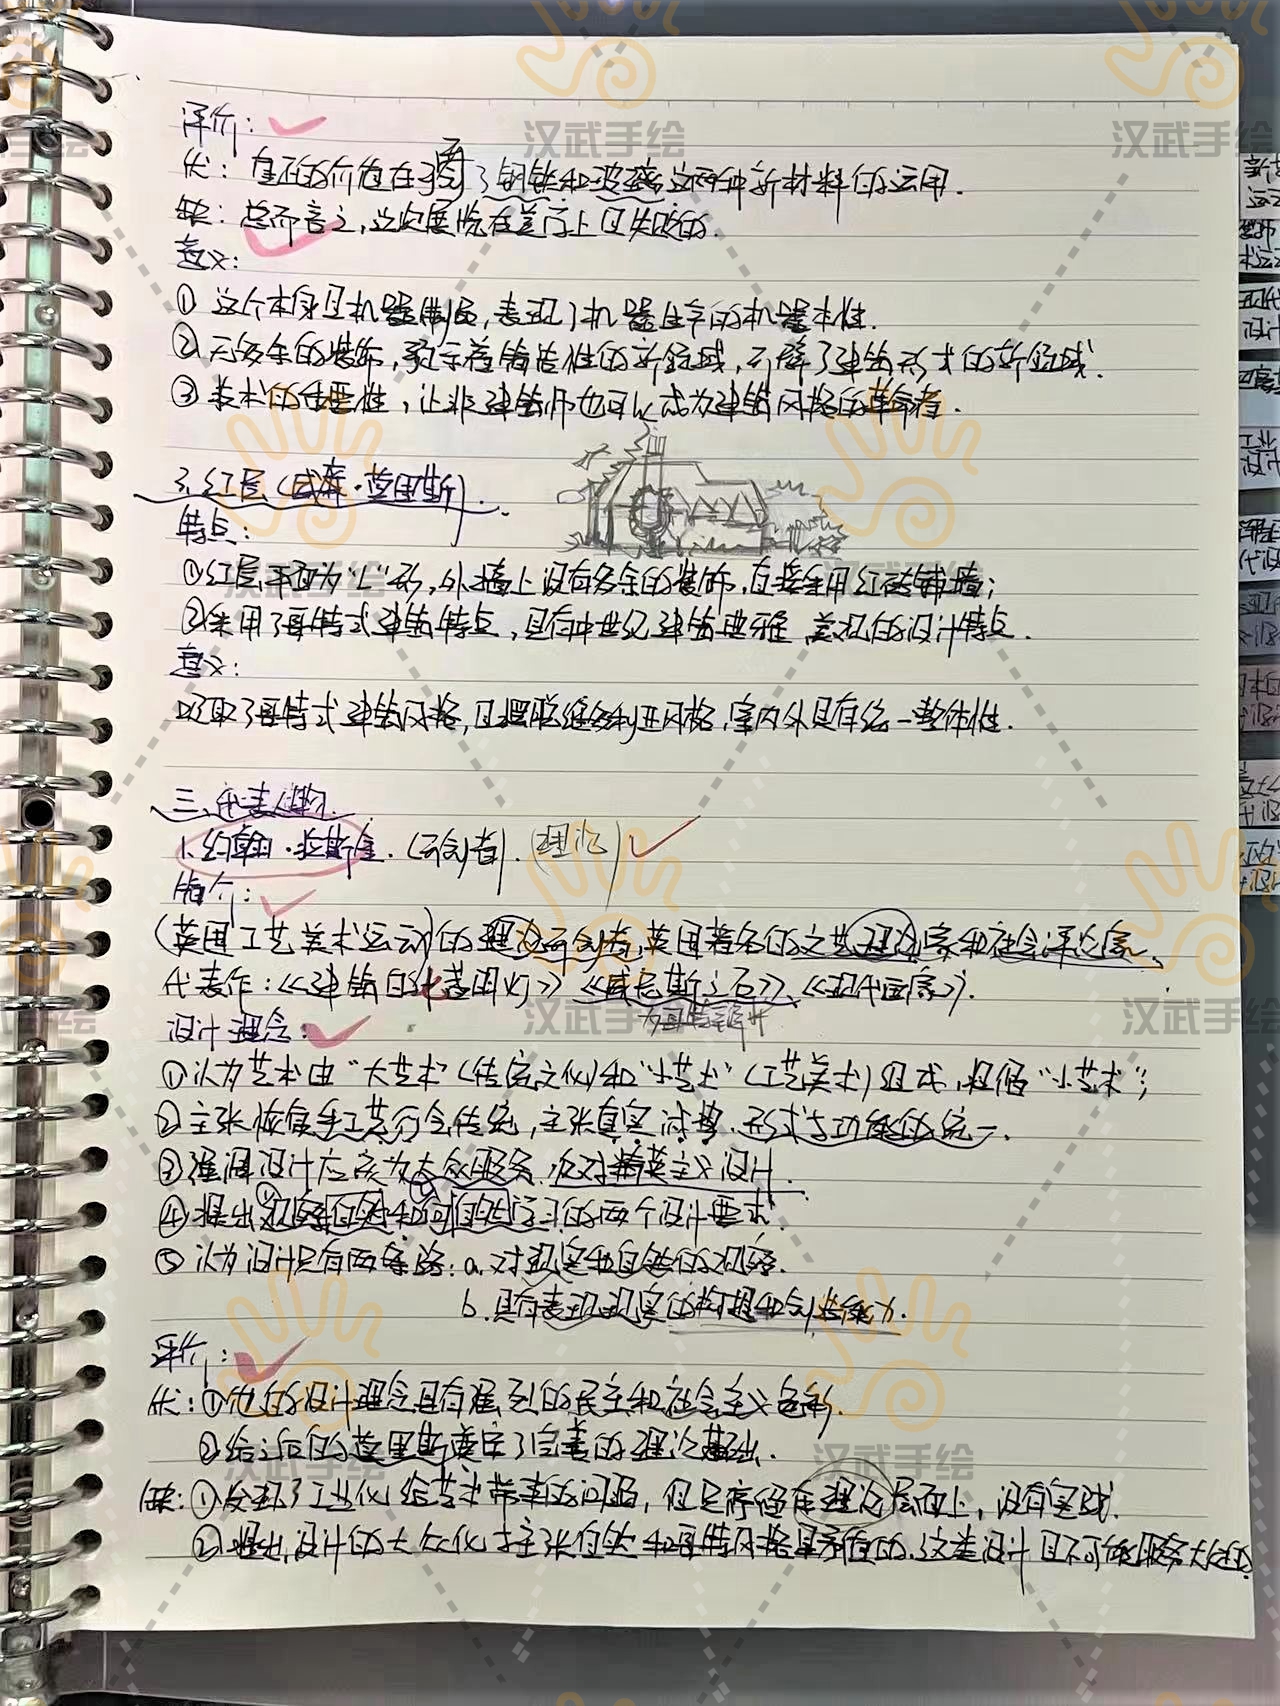 评价:
优: 真正的价值在于对了钢铁和玻璃这两种新材料的运用.
缺: 总而言之,这次展览在美学上是失败的.
意义:
① 这个本身是机器制造,表现了机器生产的机器本性.
② 无多余的装饰,预示着铸造性的新领域,开辟了建筑形式的新领域.
③ 技术的重要性,让非建筑师也可以成为建筑风格的革命者.
3. 红屋 (威廉·莫里斯).
特点:
①红屋平面为“L”形,外墙上没有多余的装饰,直接采用红砖铺墙;
②采用了哥特式建筑特点,具有中世纪建筑典雅,美观的设计特点.
意义:
吸取了哥特式建筑风格,且摆脱维多利亚风格,室内外具有统一整体性.
三、代表人物.
1.约翰·拉斯金.(开创者).(理论)
简介:
(英国工艺美术运动)的理论开创者,英国著名的文艺理论家和社会评论家.
代表作:《建筑的七盏明灯》《威尼斯之石》、《现代画家》.
为哥特辩护
设计理念:
①认为艺术由“大艺术”(传统文化)和“小艺术”(工艺美术)组成,提倡“小艺术”;
②主张恢复手工艺行会传统,主张真实诚挚、形式与功能的统一.
③强调设计应该为大众服务,反对精英主义设计.
④提出观察自然和向自然学习的两个设计要求.
⑤ 认为设计只有两条路: a.对现实和自然的观察.
b.具有表现现实的构想和创造能力.
评价:
优:①他的设计理念具有强烈的民主和社会主义色彩.
②给之后的莫里斯奠定了完善的理论基础.
缺:①发现了工业化给艺术带来的问题,但只停留在理论层面上,没有实践.
②提出设计的大众化,主张自然和哥特风格是矛盾的.这类设计是不可能服务大众的.
汉武手绘
汉武手绘
汉武手绘
汉武手绘
汉武手绘
汉武手绘
汉武手绘
汉武手绘